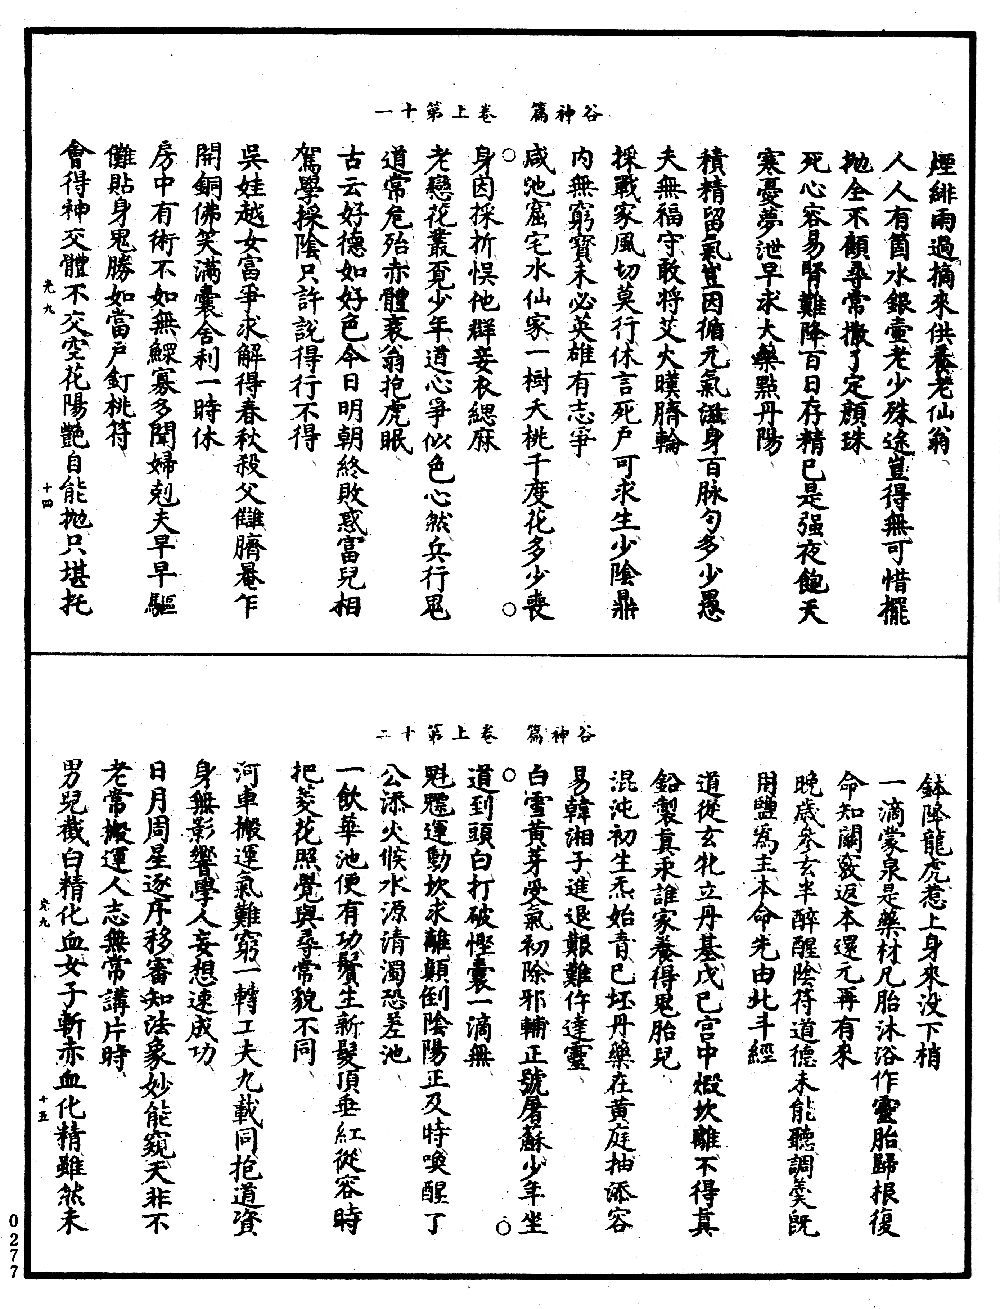 谷神篇　卷上第十一
煙緋雨過摘來供養老仙翁
人人有箇水銀壺老少殊途豈得無可惜擺
拋全不顧尋常撒了定顏珠
死心容易腎難降百日存精已是强夜飽天
寒憂夢泄早求大藥點丹陽
積精留氣豈因循元氣滋身百脉勻多少愚
夫無福守敢將艾火熯臍輪
採戰家風切莫行休言死戶可求生少陰鼎
內無窮寶未必英雄有志爭
咸池窟宅水仙家一樹夭桃千度花多少喪
身因採折悞他群妾衣緦麻
老戀花叢覓少年道心爭似色心然兵行鬼
道常危殆赤體衰翁抱虎眠
古云好德如好色今日明朝終敗惑富兒相
駕學採陰只許說得行不得
吳娃越女富爭求解得春秋殺父讎臍鼌乍
開銅佛笑滿囊舍利一時休
房中有術不如無鰥寡多聞婦剋夫早早驅
儺貼身鬼勝如當戶釘桃符
會得神交體不交空花陽艷自能拋只堪托
光九　十四
谷神篇　卷上第十二
鉢降龍虎惹上身來没下梢
一滴蒙泉是藥材凡胎沐浴作靈胎歸根復
命知關竅返本還元再有來
晚歲參玄半醉醒陰符道德未能聽調羹旣
用鹽爲主本命先由北斗經
道從玄牝立丹基戊己宫中煅坎離不得真
鉛製真汞誰家養得鬼胎兒
混沌初生炁始青已坯丹藥在黄庭抽添容
易韓湘子進退艱難仵達靈
白雪黄芽受氣初除邪輔正號屠蘇少年坐
道到頭白打破慳囊一滴無
魁魒運動坎求離顛倒陰陽正及時喚醒了
公添火候水源清濁恐差池
一飲華池便有功鬢生新髮頂垂紅從容時
把菱花照覺與尋常貌不同
河車搬運氣難窮一轉工夫九載同抱道資
身無影響學人妄想速成功
日月周星逐序移審知法象妙能窺天非不
老常搬運人志無常講片時
男兒截白精化血女子斬赤血化精雖然未
光九　十五
0277